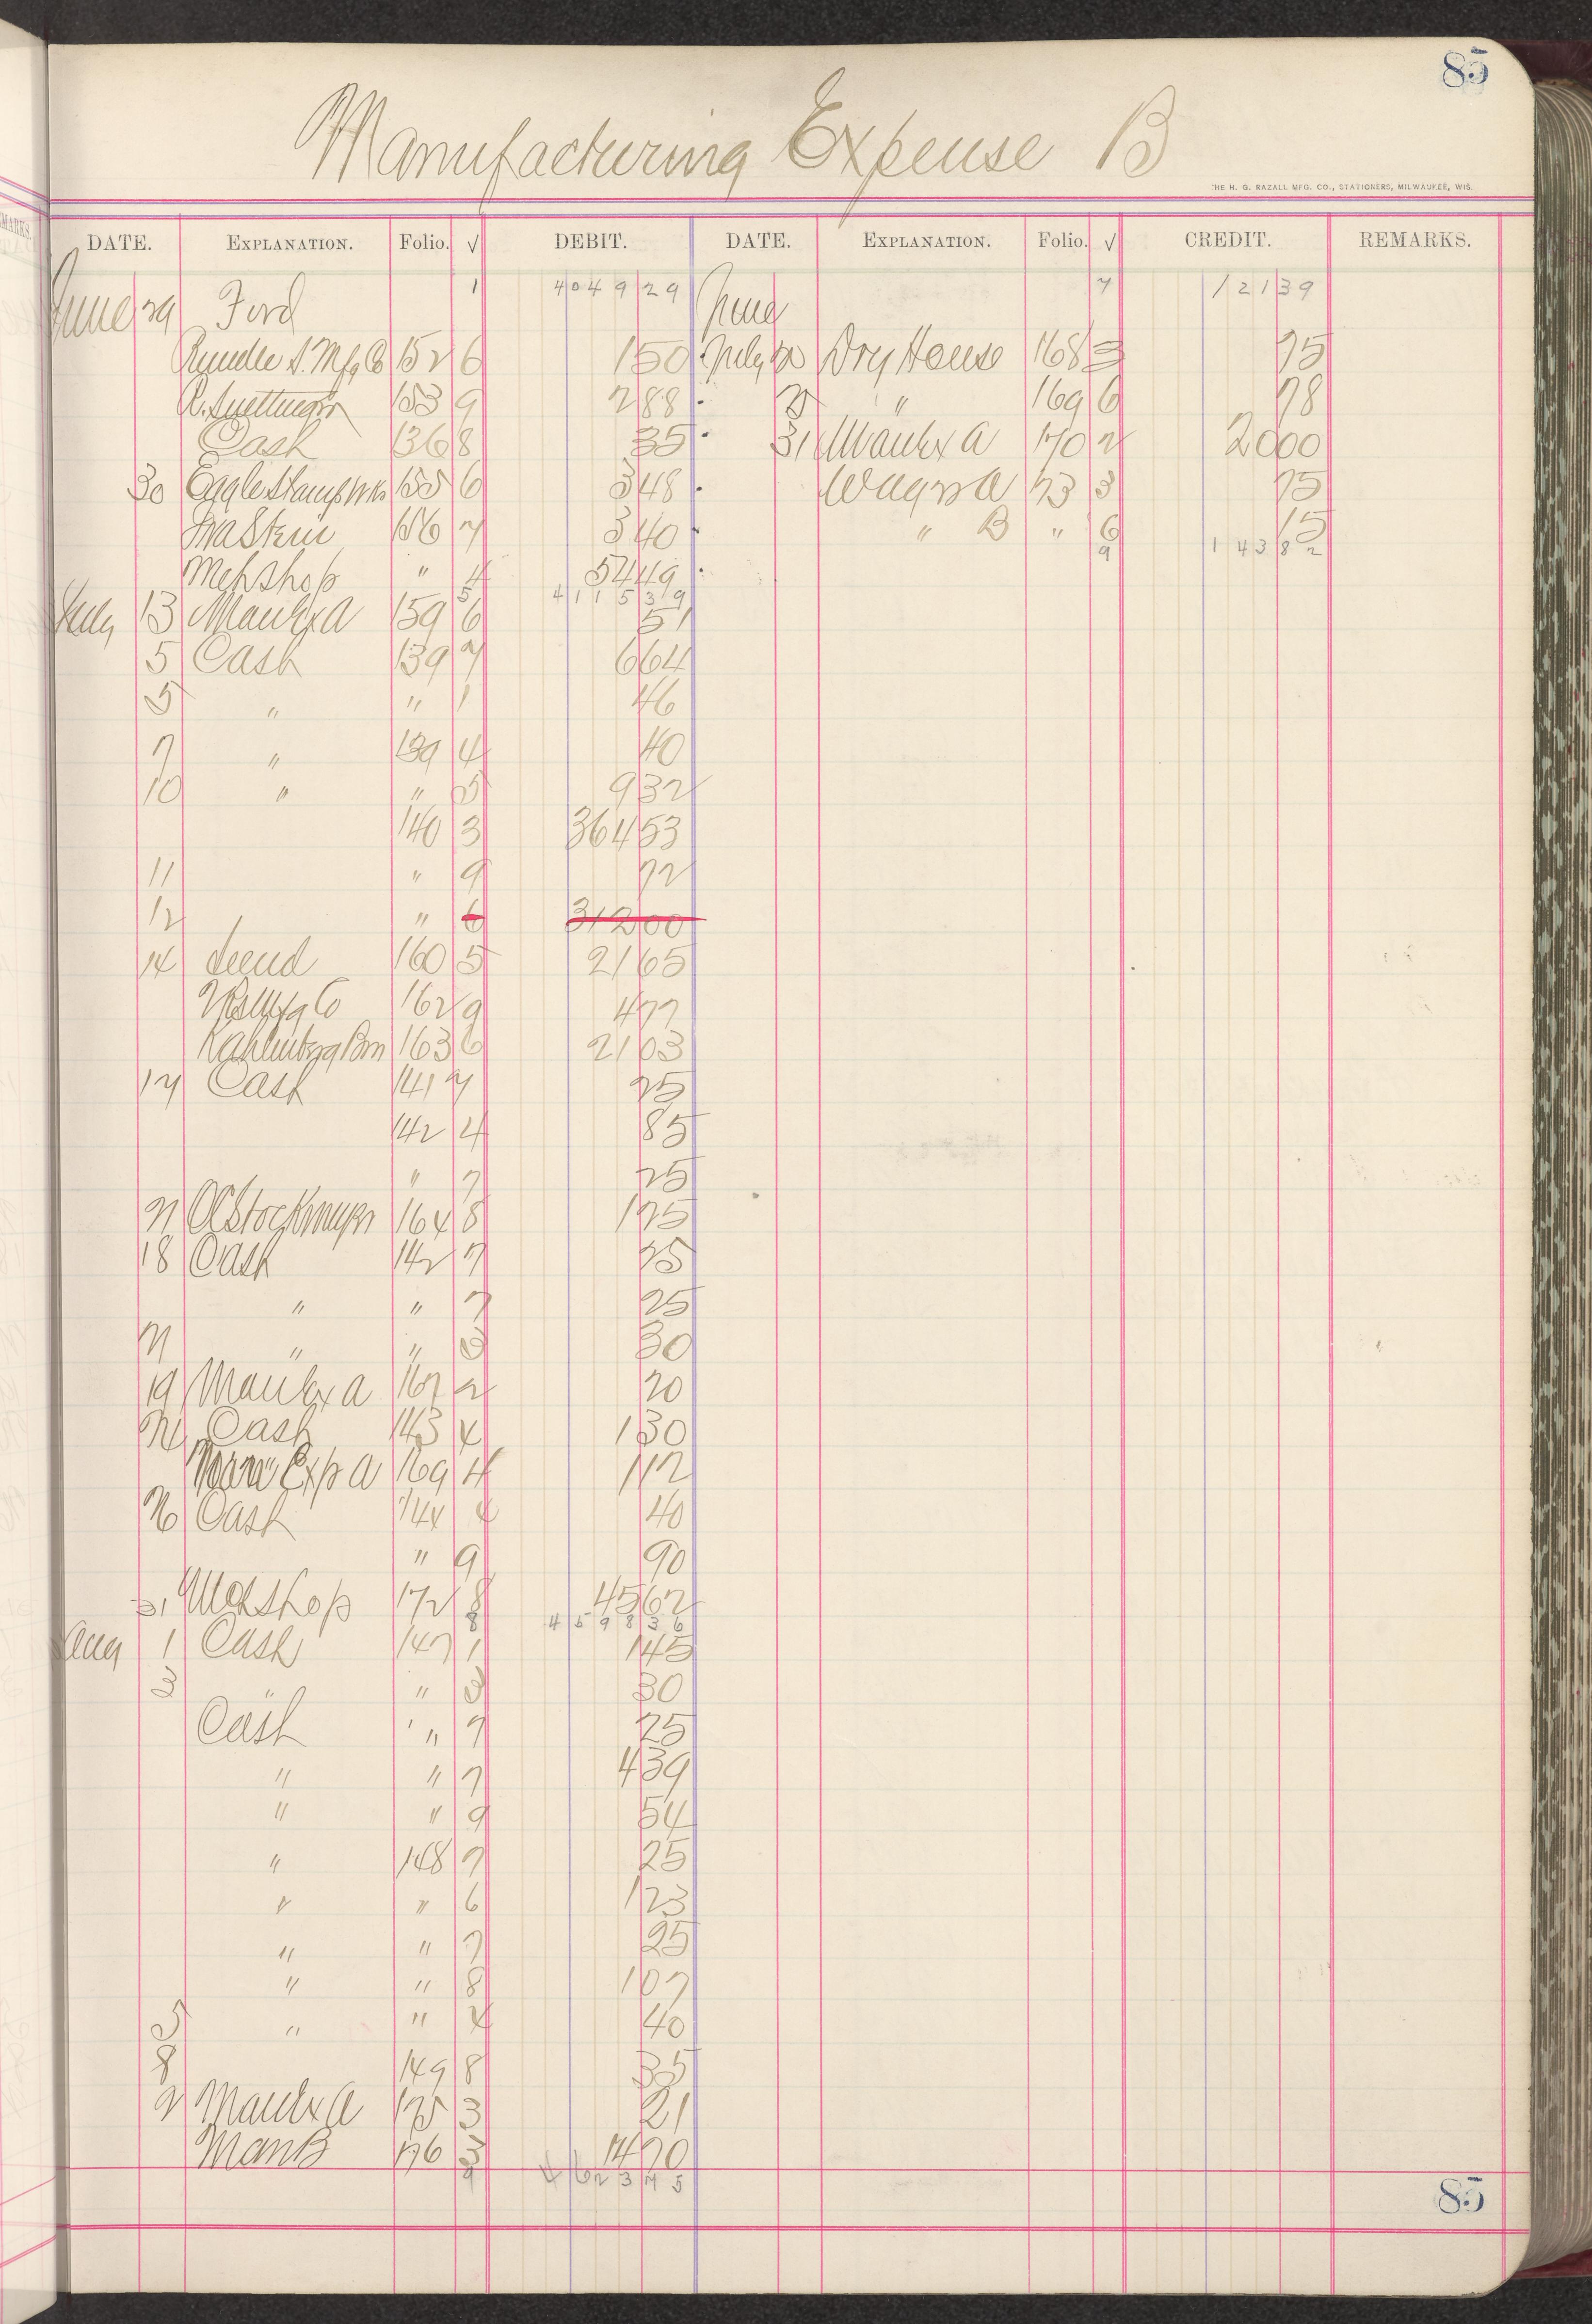 85
Manufacturing Expense B
THE H. G. RAZALL MFG. CO., STATIONERS, MILWAUKEE, WIS.
DATE. EXPLANATION. Folio. √ DEBIT. DATE. EXPLANATION. Folio. √ CREDIT. REMARKS.
June 29 Ford 1 4049 29 June 7 121 39
152 6 1 50 July Dry House 168 3 75
153 9 2 88 " 169 6 78
Cash 136 8 35 31 Manex A 170 2 20 00
30 Eagle Stamp Wks 155 6 3 48 A 173 3 75
156 7 3 40 " B " 6 15
9 143 82
Meh Shop " 4 54 49
5 4115 39
July 13 Manex A 159 6 51
5 Cash 139 7 6 64
5 " " 1 46
7 " 139 4 40
10 " " 5 9 32
140 3 364 53
11 " 9 72
12 " 6 312 00
14 160 5 21 65
162 9 4 77
Kahlenberg Bro 163 6 21 03
17 Cash 141 7 25
142 4 85
" 7 25
164 8 1 75
18 Cash 142 7 25
" " 7 25
" " 3 30
19 Manex A 167 2 20
Cash 143 4 1 30
Exp A 169 4 1 12
26 Cash 144 4 40
" 9 90
31 Meh Shop 172 8 45 62
8 4598 36
Aug 1 Cash 147 1 1 45
3 " " 3 30
Cash " 7 25
" " 7 4 39
" " 9 54
" 148 7 25
" " 6 1 23
" " 7 25
" " 8 1 07
5 " " 4 40
8 149 8 35
Manex A 175 3 21
Man B 176 3 14 70
9 4623 75
85